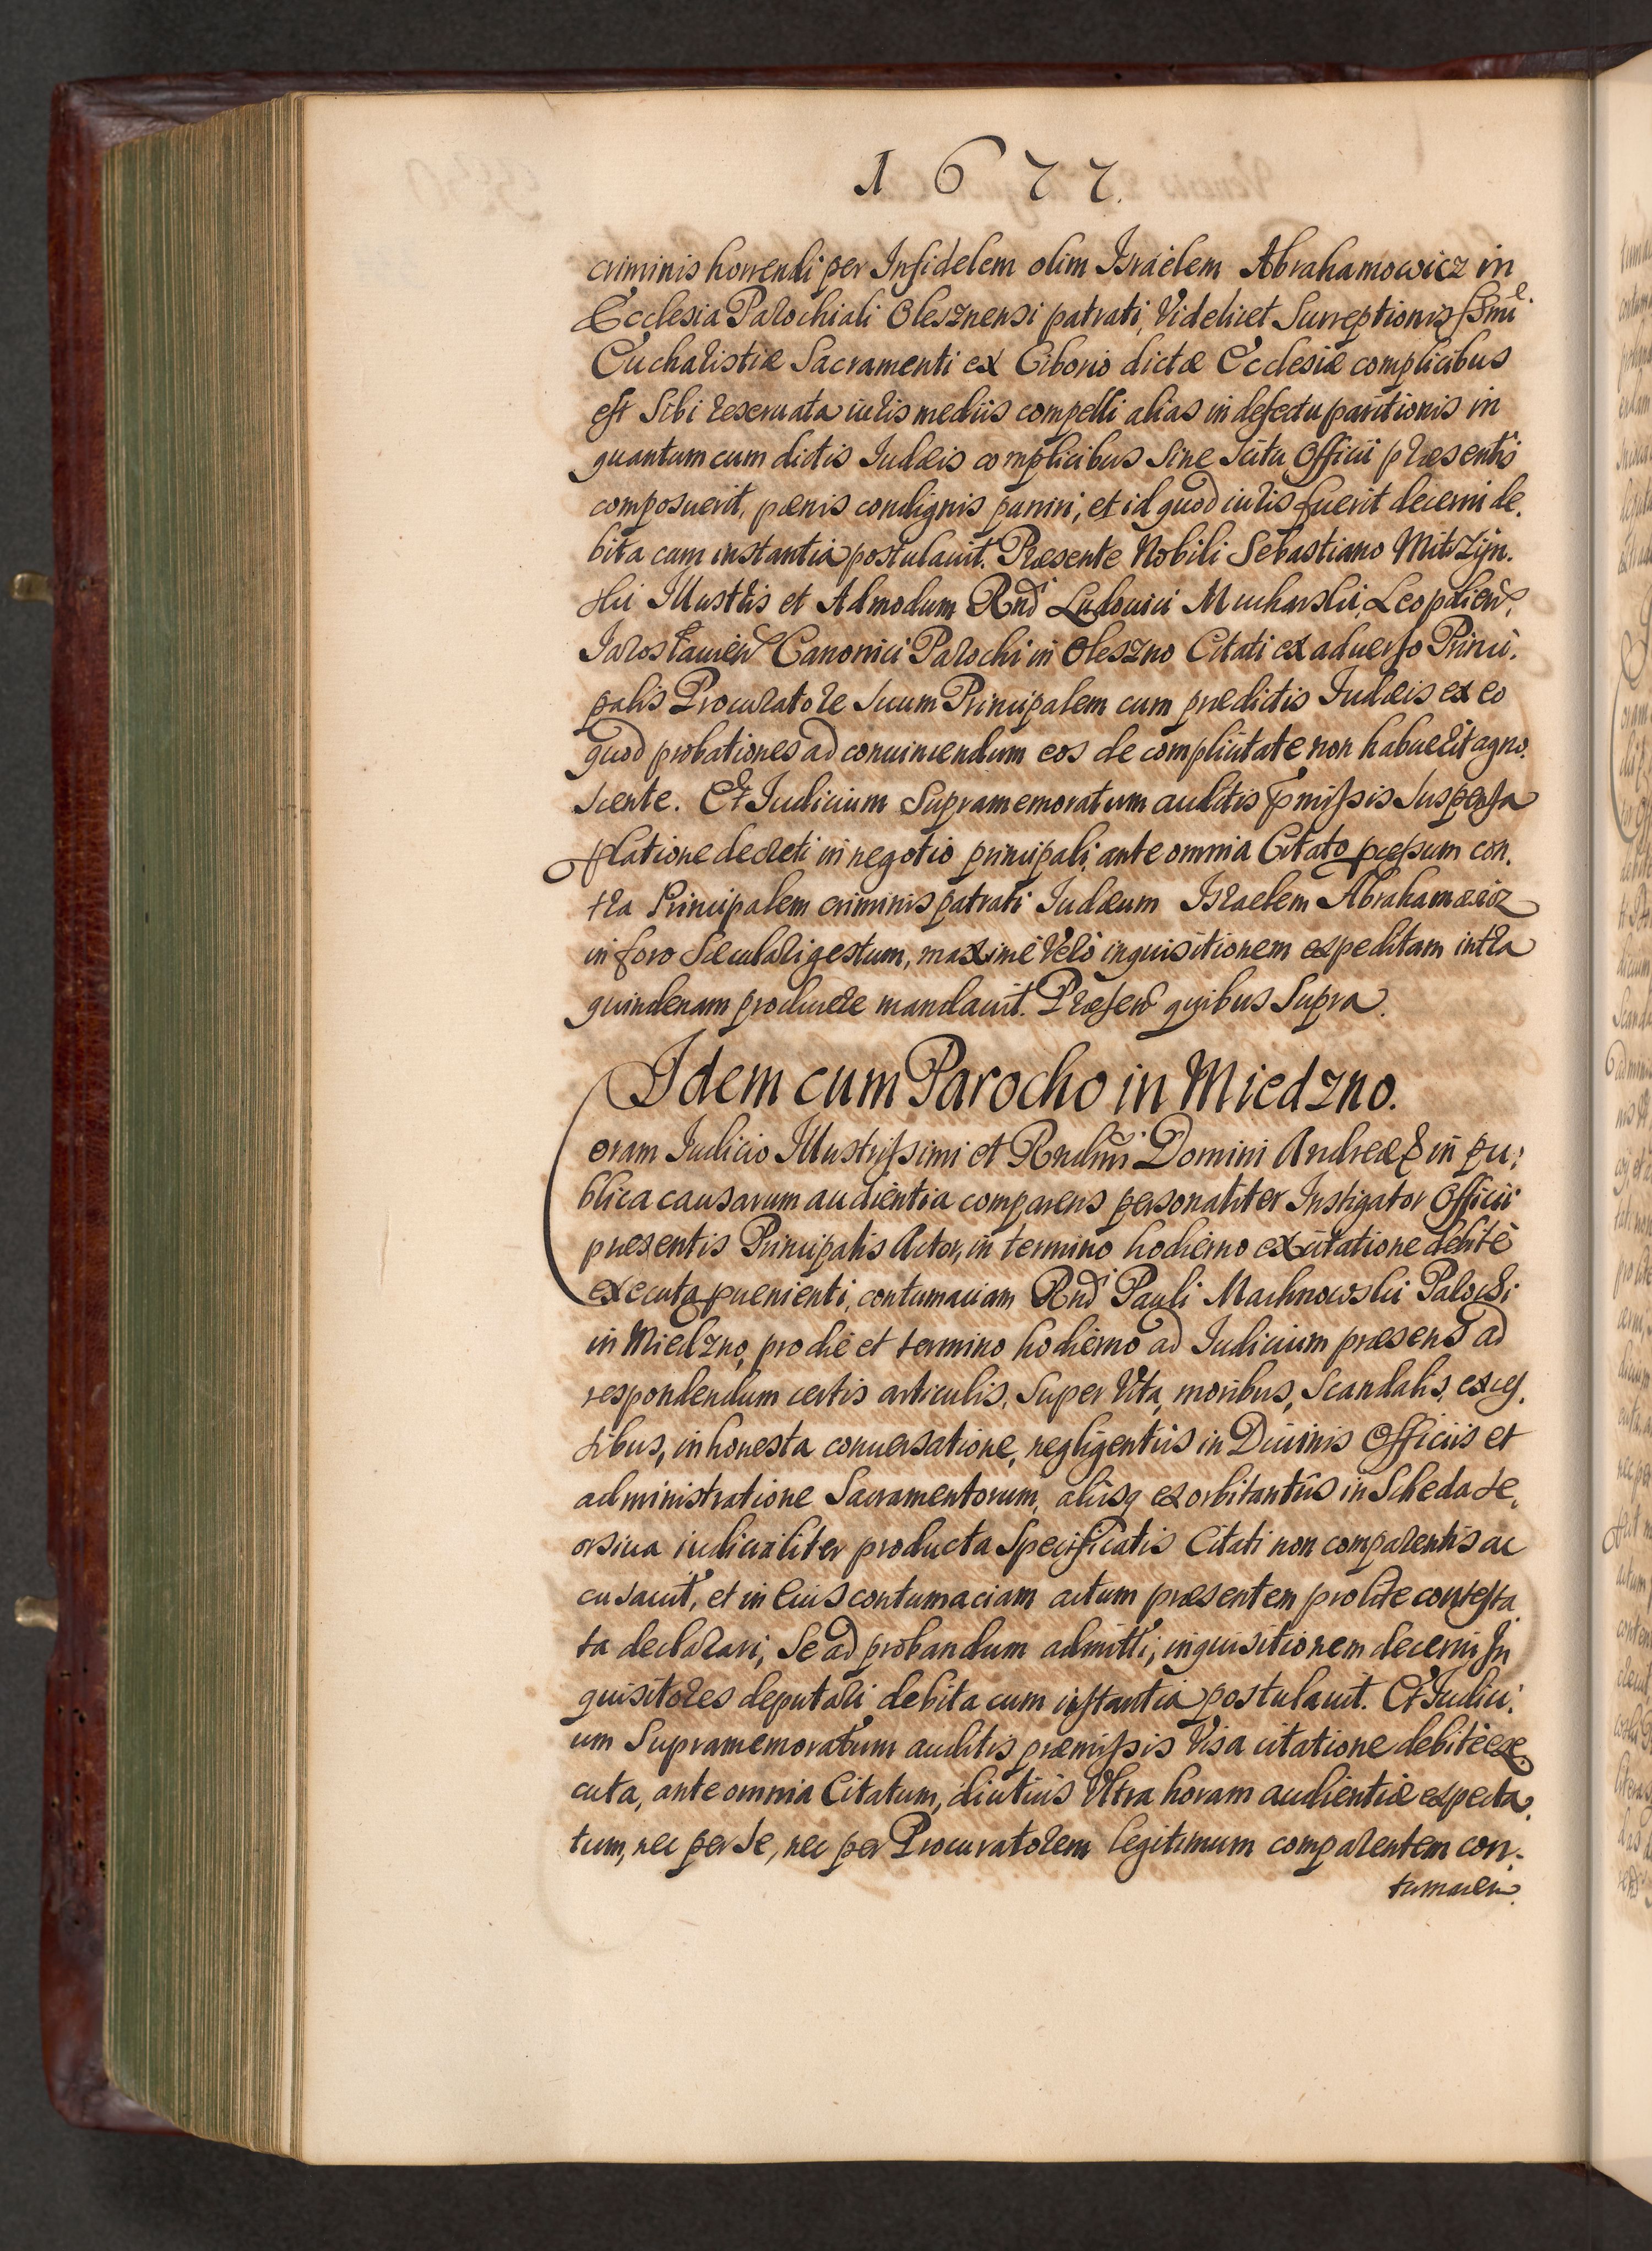 1677.
criminis horrendi per Infidelem olim Israelem Abrahamowicz in
Ecclesia Parochiali Olesznensi patrati, Videlicet Surreptionis SSmi
Eucharistiæ Sacramenti ex Ciborio dictæ Ecclesiæ complicibus
est sibi reseruata iuris mediis compelli alias in defectu paritionis in
quantum cum dictis Iudæis complicibus sine scitu Officii præsentis
composuerit, pænis condignis puniri, et id quod iuris fuerit decerni de.
bita cum instantia postulauit. Præsente Nobili Sebastiano
Illustris et Admodum Rndi Ludouici Mucharski, Leopolien,
Iaroslauien Canonici Parochi in Oleszno Citati ex aduerso Princi.
palis Procuratore suum Principalem cum prædictis Iudæis ex eo
quod probationes ad conuincendum eos de complicitate non habuerit agno.
scente. Et Iudicium Supramemoratum auditis pmissis suspensa
platione decreti in negotio principali, ante omnia Citato pcessum con.
tra Principalem criminis patrati Iudæum Israelem Abrahamowicz
in foro Sæculari gestum, maxime Vero inquisitionem expeditam intra
quindenam producere mandauit. Præsen quibus Supra.
Idem cum Parocho in Miedzno.
Coram Iudicio Illustrissimi et Rndmi Domini Andreæ & in pu:
blica causarum audientia comparens personaliter Instigator Officii
præsentis Principalis Actor, in termino hodierno ex citatione debite
executa puenienti, contumaciam Rndi Pauli Machnowski Parochi
in Miedzno, pro die et termino hodierno ad Iudicium præsens ad
respondendum certis articulis, super Vita, moribus, scandalis, exces.
sibus, inhonesta conuersatione, negligentiis in Diuinis Officiis et
administratione Sacramentorum, aliisq exorbitantiis in Scheda se.
orsiua iudicialiter producta Specificatis Citati non comparentis ac
cusauit, et in Eius contumaciam actum præsentem pro lite contesta
ta declarari, se ad probandum admitti, inquisitionem decerni In
quisitores deputari debita cum instantia postulauit. Et Iudici:
um Supramemoratum auditis præmissis Visa citatione debite exe.
cuta, ante omnia Citatum, diutius Vltra horam audientiæ expecta.
tum, nec per se, nec per Procuratorem legitimum comparentem con.
tumacem.